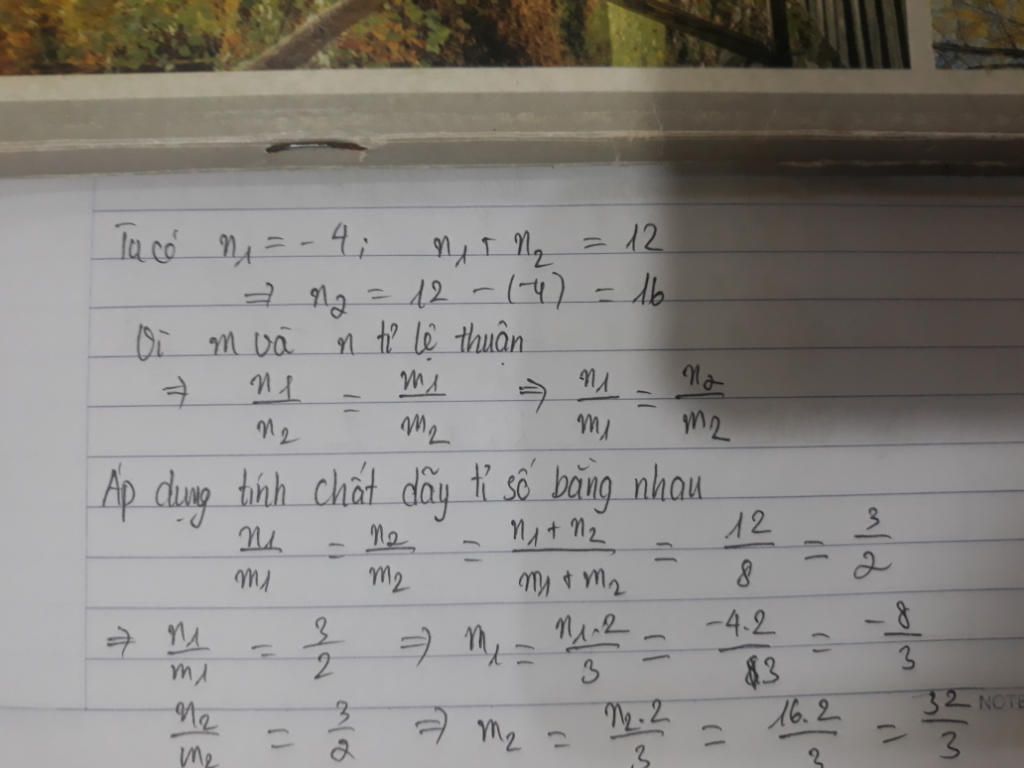 Ta có n₁ = - 4; n₁ + n₂ = 12
⇒ n₂ = 12 - (-4) = 16
Vì m và n tỉ lệ thuận
⇒ n₁/n₂ = m₁/m₂ ⇒ n₁/m₁ = n₂/m₂
Áp dụng tính chất dãy tỉ số bằng nhau
n₁/m₁ = n₂/m₂ = (n₁ + n₂)/(m₁ + m₂) = 12/8 = 3/2
⇒ n₁/m₁ = 3/2 ⇒ m₁ = (n₁.2)/3 = (-4.2)/3 = -8/3
n₂/m₂ = 3/2 ⇒ m₂ = (n₂.2)/3 = (16.2)/3 = 32/3
NOTE